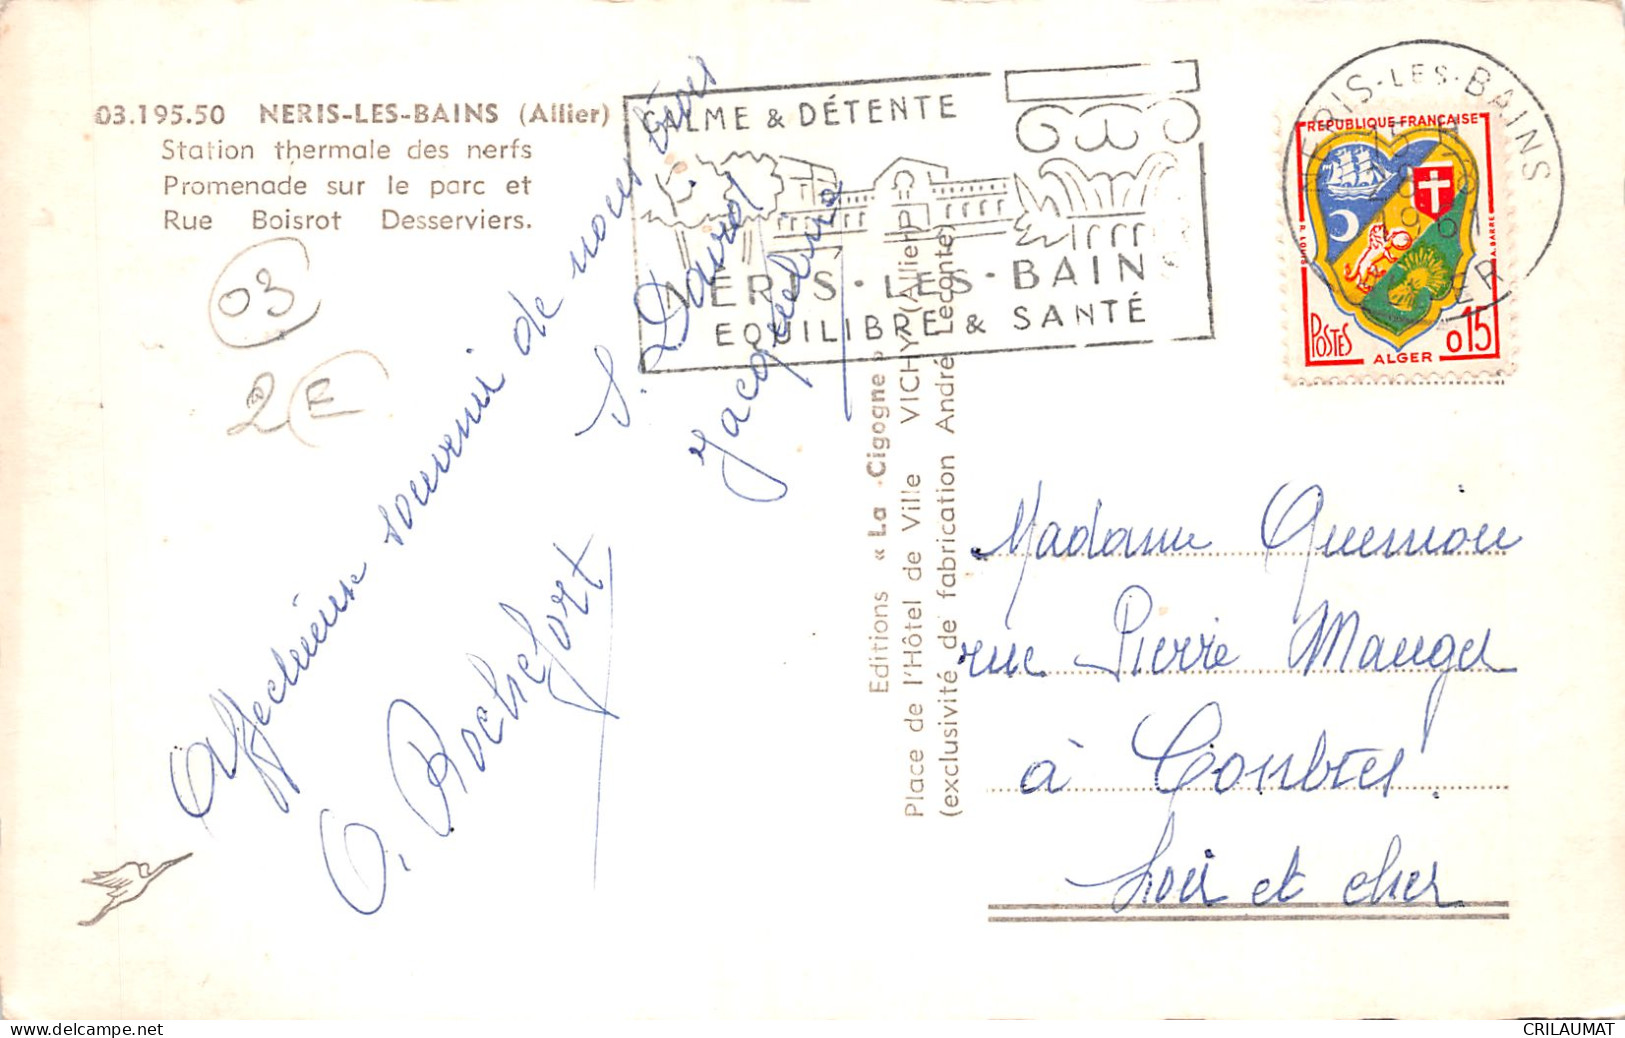 03.195.50 NERIS-LES-BAINS (Allier)
Station thermale des nerfs
Promenade sur le parc et
Rue Boisrot Desserviers.
03
2 E
CALME & DÉTENTE
NERIS·LES·BAIN
EQUILIBRE & SANTÉ
NERIS-LES-BAINS
15 H
ER
REPUBLIQUE FRANÇAISE
R. LOUIS
A. BARRE
POSTES
ALGER
0,15
Affectueux souvenir de nous trois
S. David
Jacqueline
O. Rochefort
Editions « La Cigogne »
Place de l'Hôtel de Ville VICHY (Allier)
(exclusivité de fabrication André Leconte)
Madame
rue Pierre Mauger
à Contres
Loir et cher
CRILAUMAT